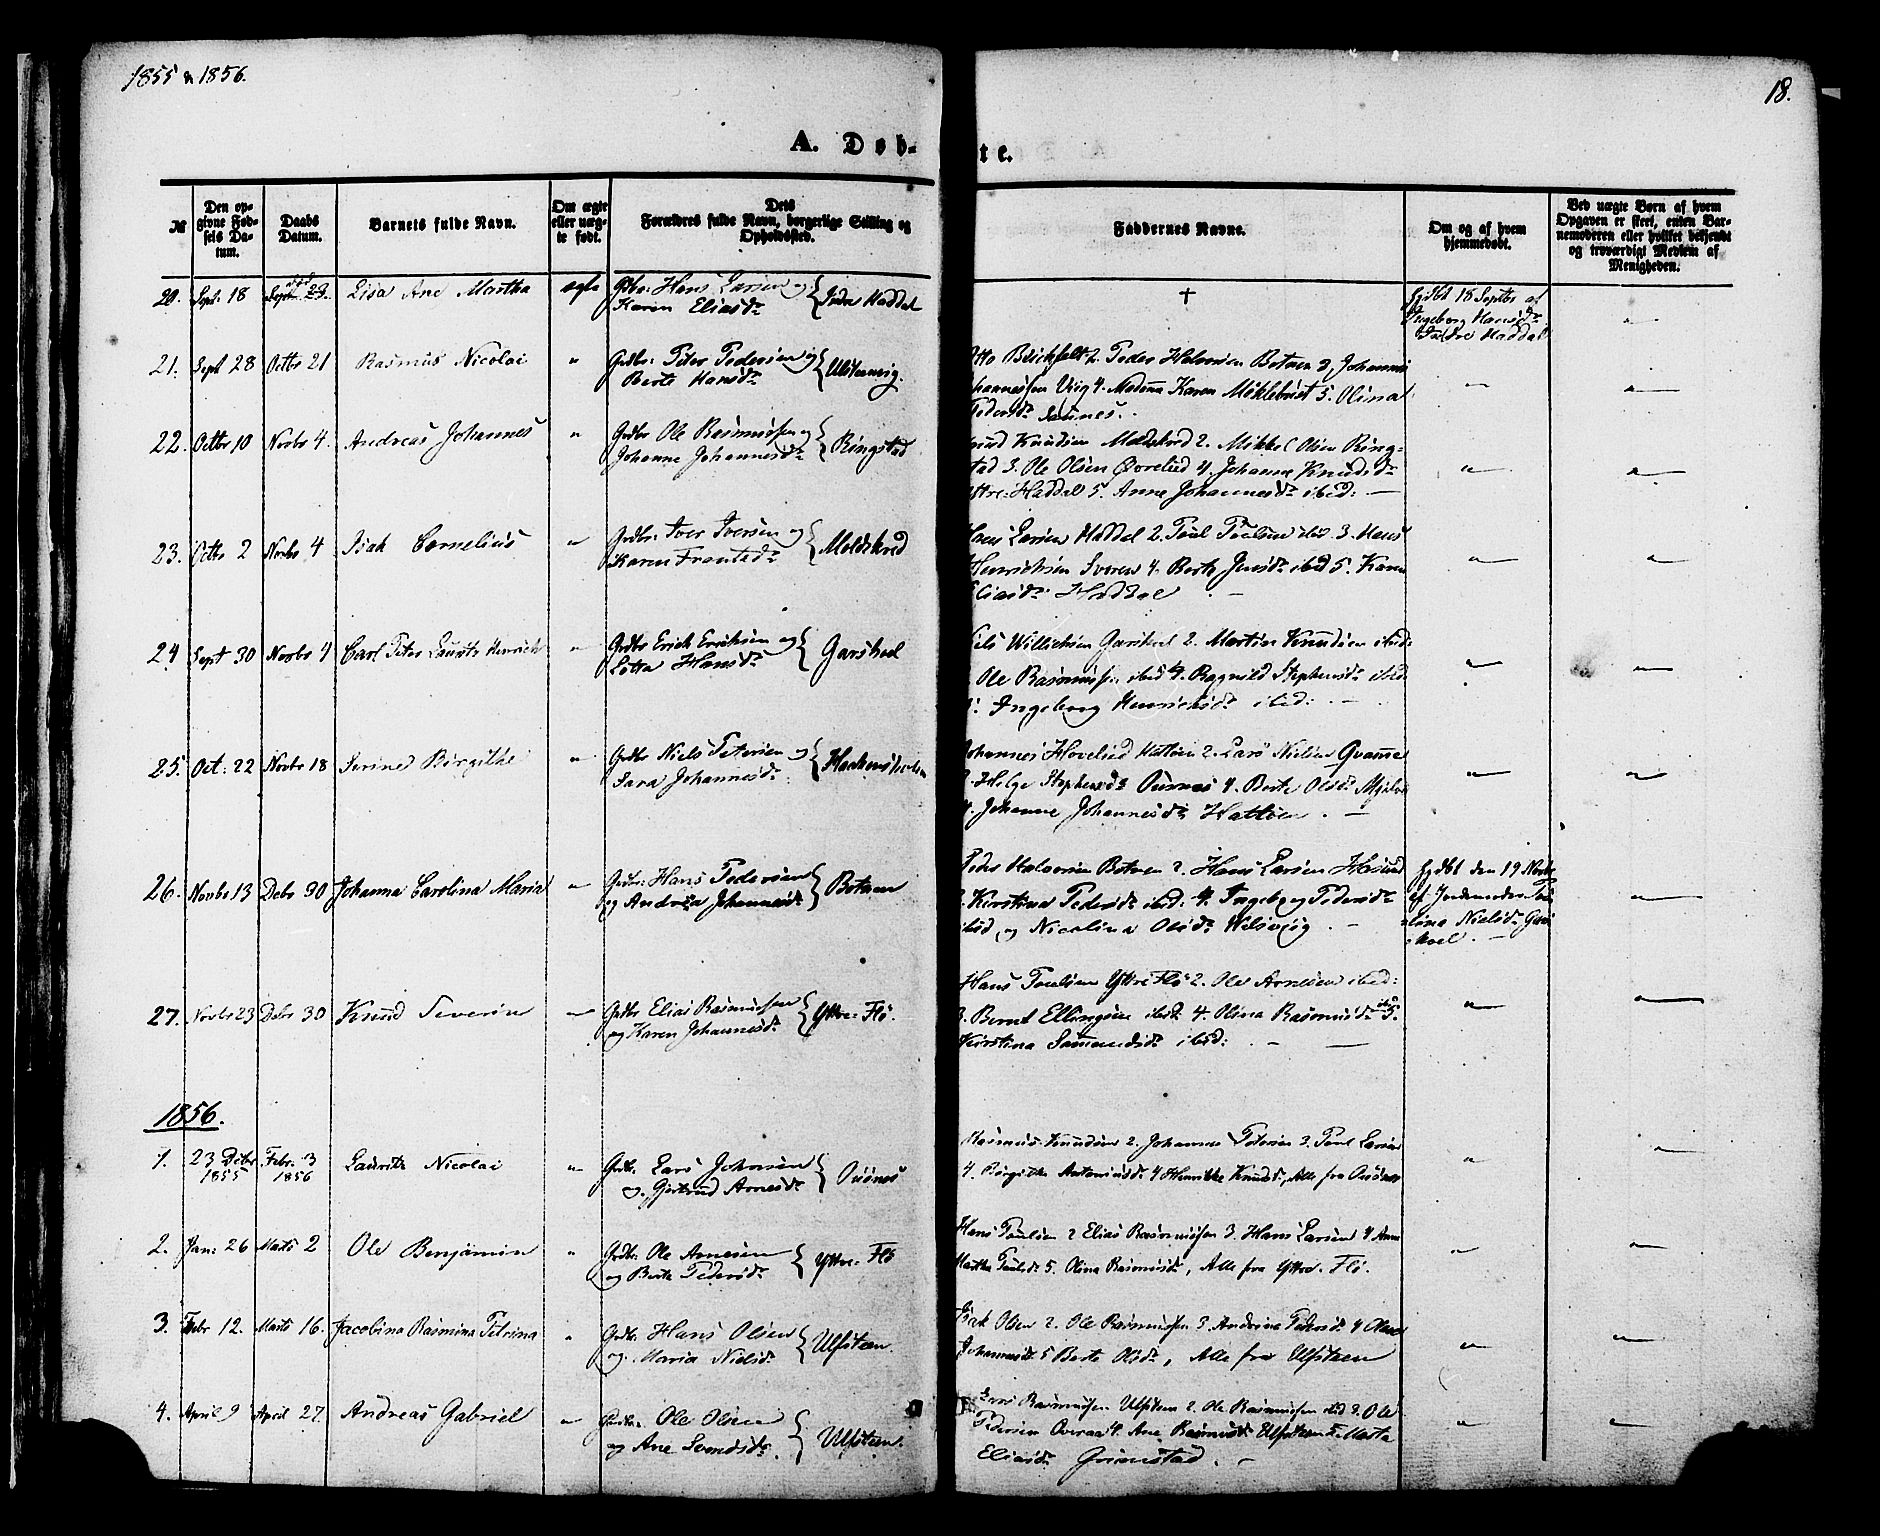 1855 & 1856.
18.
A. Døb-
te.
№
Den op-
givne Fød-
sels Da-
tum.
Daabs
Datum.
Barnets fulde Navn.
Om ægte
eller uæg-
te født.
Dets
Forældres fulde Navn, borgerlige Stilling og
Opholdssted.
Faddernes Navne.
Om og af hvem
hjemmedøbt.
Ved uægte Børn af hvem
Opgaven er skeet, enten Bar-
nemoderen eller hvilket bekjendt
og troværdigt Medlem af
Menigheden.
20. Sept: 18 Sept 23. Lisa Ane Martha ægte Grdbr: Hans Larsen og Indre Haddal
Karen Eliasdr
†
Hjdbt 18 Septbr af
Ingeborg Hansdr
Indre Haddal
21. Sept 28 Octbr 21 Rasmus Nicolai " Grdbr: Peter Pedersen og Ulsteenvig.
Berte Hansdr
Otto Birkfeldt 2. Peder Halvorsen Botnen 3, Johannes
Johannessen Viig 4. Madama Karen Möklebust 5. Olina
Pedersdr Saunes.
22. Octbr 10 Novbr 4. Andreas Johannes " Grdbr Ole Rasmussen og Ringstad
Johanne Johannesdr
Knud Knudsen Moldskred 2. Mikkel Olsen Ring-
stad 3. Ole Olsen Överlid 4. Johanne Knudsdr
Yttre-Haddal 5. Anne Johannesdr ibid: —
23. Octbr 2 Novbr 4 Isak Cornelius " Grdbr: Iver Iversen og Moldskred
Karen Frantsdr
Hans Larsen Haddal 2. Poul Poulsen ibid 3. Hans
Henrichsen Sveren 4. Berte Jensdr ibid 5. Karen
Eliasdr Haddal . —
24 Sept 30 Novbr 4 Carl Peter Laurits Henrich " Grdbr Erich Erichsen og Garshol
Lotta Hansdr
Nils Willichsen Garshol 2. Martin Knudsen ibid:
Ole Rasmussen ibid 4. Ragnild Stephensdr ibid
5. Ingeborg Henrichsdr ibid: . —
25. Oct: 22 Novbr 18 Serine Birgithe " Grdbr Niels Petersen og Haakonsholm
Sara Johannesdr
Johannes Hovelid Hattöen 2. Lars Nielsen Qvamme
3. Helge Stephensdr Ousnes 4. Berte Olsdr
4. Johanne Johannesdr Hattöen . —
26. Novbr 13 Debr 30 Johanna Carolina Maria " Grdbr: Hans Pedersen Botnen
og Andrea Johannesdr
Peder Halvorsen Botnen 2. Hans Larsen Hasund
3. Kirstina Pedersdr ibid: 4. Ingeborg Pedersdr
ibid, og Nicolina Olsdr . —
Hjdbt den 19 Novbr
af Jordemoder Pou-
lina Nielsdr Gars-
hoel. —
27. Novbr 23 Debr 30 Knud Severin — Grdbr Elias Rasmussen Yttre-Flö.
og Karen Johannesdr
Hans Poulsen Yttre Flö 2. Ole Arnesen ibid:
3. Bernt Ellingsen ibid: 4. Olina Rasmusdr ibid 5.
Kirstina Samundsdr ibid: . — —
1856.
1. 23 Debr Febr. 3 Laurits Nicolai " Grdbr. Lars Johnsen Ousnes
1855 1856 og Gjertrud Arnesdr
Rasmus Knudsen 2. Johannes Petersen 3. Poul Larsen
4. Birgithe Antoniusdr 4 Henrikke Knudsdr, Alle fra Ousnes
2. Jan: 26 Marts 2 Ole Benjamin " Grdbr. Ole Arnesen Yttre-Flö
og Berte Pedersdr
Hans Poulsen 2 Elias Rasmussen 3. Hans Larsen 4 Anne
Martha Poulsdr 5. Olina Rasmusdr, Alle fra Yttre-Flö.
3. Febr 12. Marts 16. Jacobina Rasmina Petrina " Grdbr. Hans Olsen Ulfsteen
og Maria Nielsdr
Isak Olsen 2. Ole Rasmussen 3. Andrine Pedersdr 4
Johannesdr 5 Berte Olsdr, Alle fra Ulfsteen
4. April 9 April 27. Andreas Gabriel " Grdbr. Ole Olsen Ulfsteen.
og Ane Svendsdr.
Lars Rasmussen Ulfsteen 2. Ole Rasmussen ibid 3. Ole
Pedersen Overaa 4. Ane Rasmusdr Ulfsteen 5. Marta
Eliasdr Grimstad. —